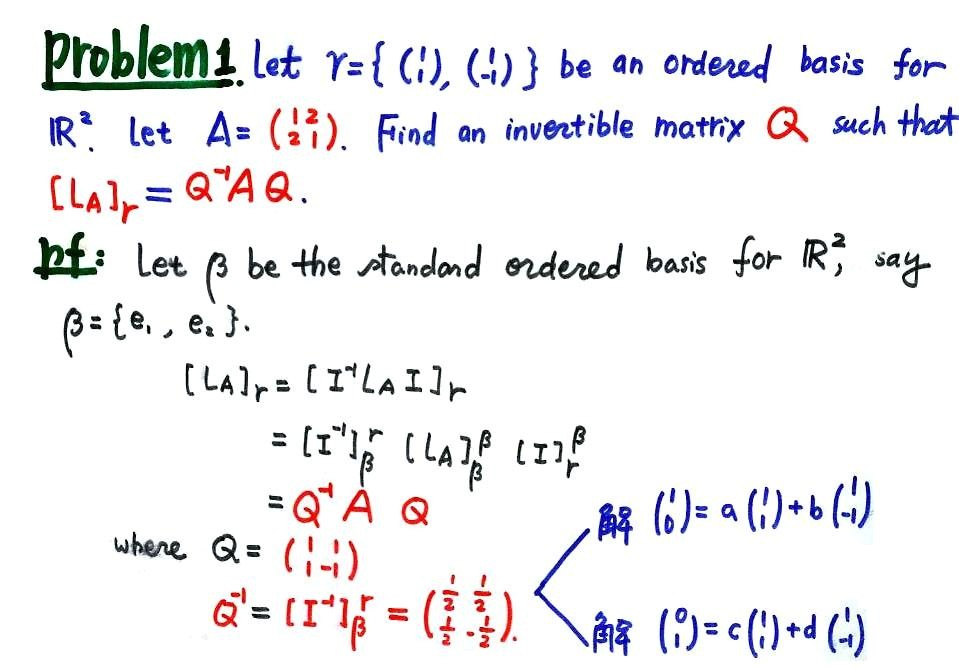 Problem 1. Let γ = { (1 1), (1 -1) } be an ordered basis for
ℝ². Let A = (1 2 2 1). Find an invertible matrix Q such that
[L_A]_γ = Q⁻¹AQ.
pf: Let β be the standard ordered basis for ℝ², say
β = {e₁, e₂}.
[L_A]_γ = [I⁻¹ L_A I]_γ
= [I⁻¹]_β^γ [L_A]_β^β [I]_γ^β
= Q⁻¹ A Q
where Q = (1 1 1 -1)
Q⁻¹ = [I⁻¹]_β^γ = (1/2 1/2 1/2 -1/2).
解 (1 0) = a(1 1) + b(1 -1)
解 (0 1) = c(1 1) + d(1 -1)